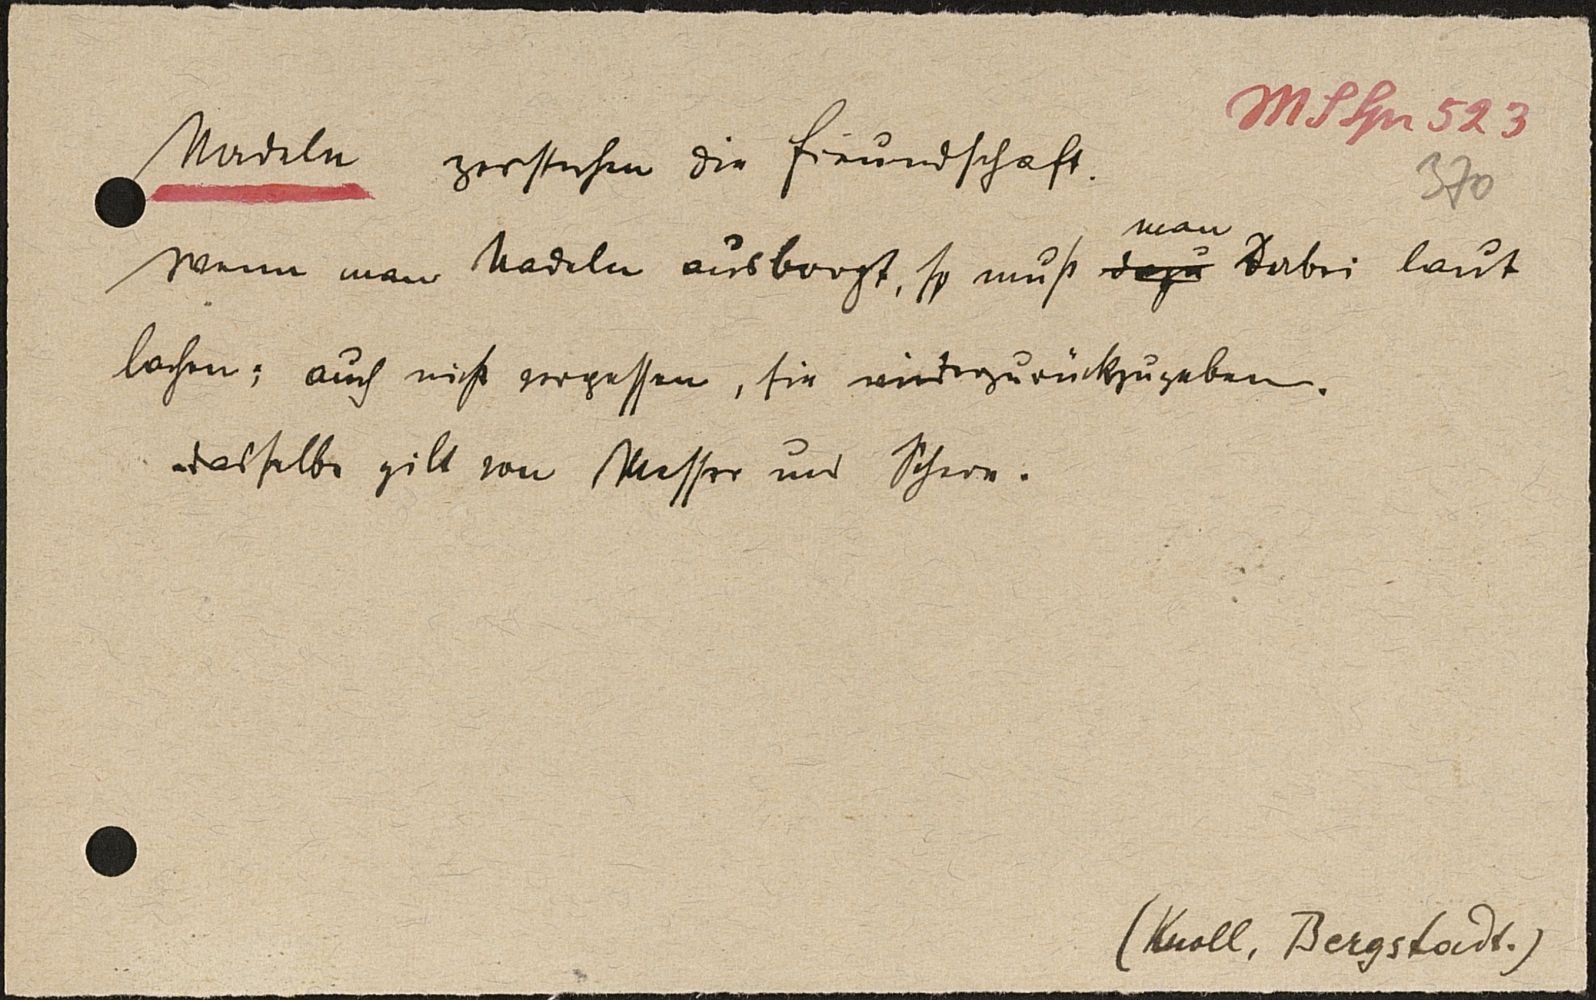 MSSpr 523
370
Nadeln zerstechen die Freundschaft.
Wenn man Nadeln ausborgt, so muß man dazu Dabei laut
lachen; auch nicht vergessen, sie wiederzurückzugeben.
dasselbe gilt von Messer und Schere.
(Knoll, Bergstadt.)